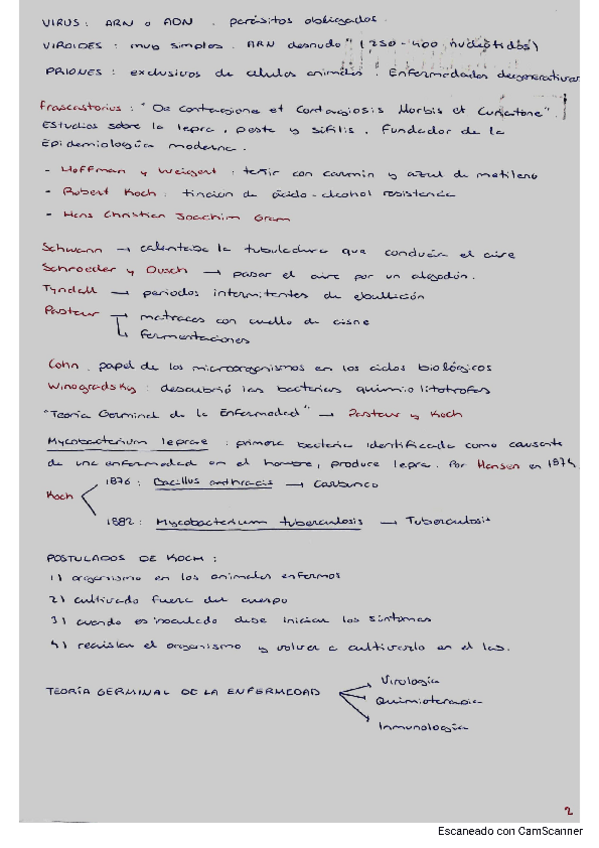 VIRUS: ARN o ADN. parásitos obligados.
VIROIDES: muy simples. ARN desnudo" (250-400 nucleótidos)
PRIONES: exclusivos de células animales. Enfermedades degenerativas
Frascastorius: "De contagione et Contagiosis Morbis et Curatone".
Estudios sobre la lepra, peste y sífilis. Fundador de la
Epidemiología moderna.
- Hoffman y Weigert: teñir con carmín y azul de metileno
- Robert Koch: tinción de ácido-alcohol resistencia
- Hans Christian Joachim Gram
Schwann → calentaba la tubuladura que conducía el aire
Schroeder y Dusch → pasar el aire por un algodón.
Tyndall → periodos intermitentes de ebullición
Pasteur → matraces con cuello de cisne
↳ fermentaciones
Cohn. papel de los microorganismos en los ciclos biológicos
Winogradsky: descubrió las bacterias quimiolitotrofas
"Teoría Germinal de la Enfermedad" → Pasteur y Koch
Mycobacterium leprae: primera bacteria identificada como causante
de una enfermedad en el hombre, produce lepra. Por Hansen en 1874
Koch
1876: Bacillus anthracis → Carbunco
1882: Mycobacterium tuberculosis → Tuberculosis
POSTULADOS DE KOCH:
1) organismo en los animales enfermos
2) cultivado fuera del cuerpo
3) cuando es inoculado debe iniciar los síntomas
4) reaislar el organismo y volver a cultivarlo en el lab.
TEORÍA GERMINAL DE LA ENFERMEDAD
Virología
Quimioterapia
Inmunología
2
Escaneado con CamScanner